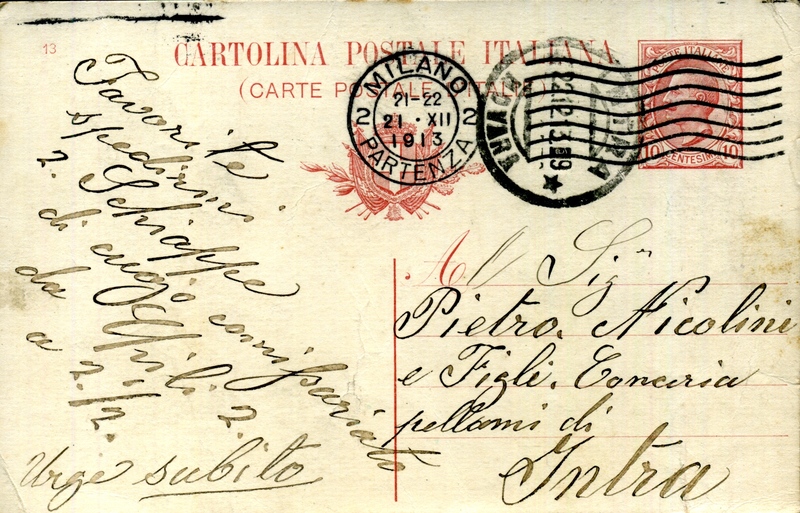 13
CARTOLINA POSTALE ITALIANA
(CARTE POSTALE D'ITALIE)
MILANO
PARTENZA
2 2
21-22
21 · XII
1913
NOVARA
INTRA
22.12.13.19
POSTE ITALIANE
10 CENTESIMI 10
Favorite
spedirmi
2. Schiappe
di cuojo
da
a 2.½.
Urge subito
All Sigr
Pietro. Nicolini
e Figli. Conceria
pellami di
Intra